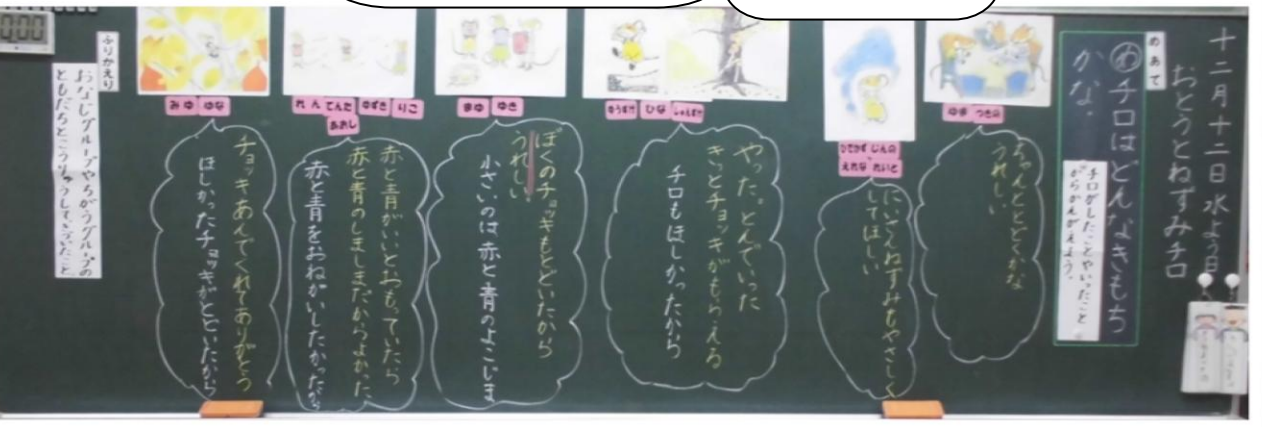 十二月十二日 水よう日
おとうとねずみチロ
めあて
めチロはどんなきもち
かな。
チロがしたことやいったこと
がらかんがえよう。
ゆき つきの
ちゃんととどくかな
うれしい
ひでかず じんの
えれな れいと
にいさんねずみもやさしく
してほしい
ゆうすけ ひな しゅんすけ
やった。とんでいった
きっとチョッキがもらえる
チロもほしかったから
まゆ ゆき
ぼくのチョッキもとどいたから
うれしい。
小さいのは赤と青のよこじま
れん てんた ゆずき りこ
あおし
赤と青がいいとおもっていたら
赤と青のしましまだからよかった
赤と青をおねがいしたかったから
みゆ ゆな
チョッキあんでくれてありがとう
ほしかったチョッキがとどいたから
ふりかえり
おなじグループやちがうグループの
ともだちとこうりゅうしてきづいたこと
0:00